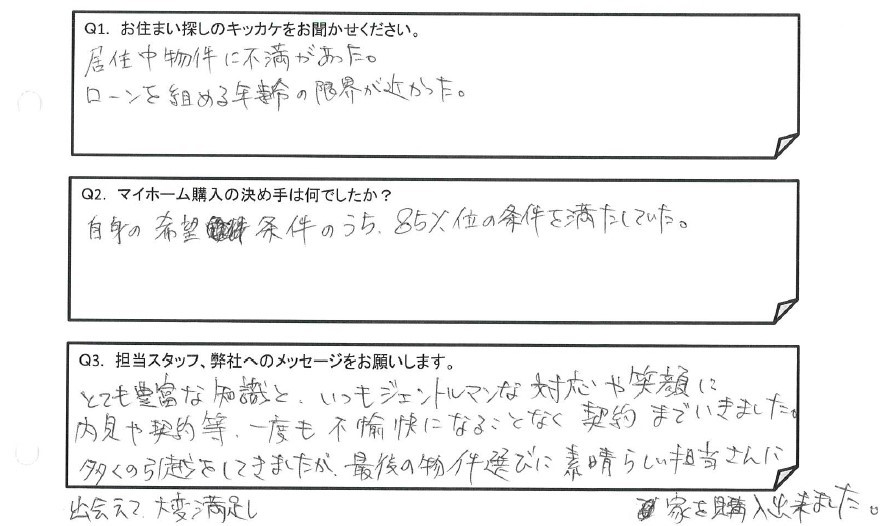 Q1. お住まい探しのキッカケをお聞かせください。
居住中物件に不満があった。
ローンを組める年齢の限界が近かった。
Q2. マイホーム購入の決め手は何でしたか?
自身の希望条件のうち、85%位の条件を満たしていた。
Q3. 担当スタッフ、弊社へのメッセージをお願いします。
とても豊富な知識と、いつもジェントルマンな対応や笑顔に
内見や契約等、一度も不愉快になることなく契約までいきました。
多くの引越をしてきましたが、最後の物件選びに素晴らしい担当さんに
出会えて、大変満足し 家を購入出来ました。